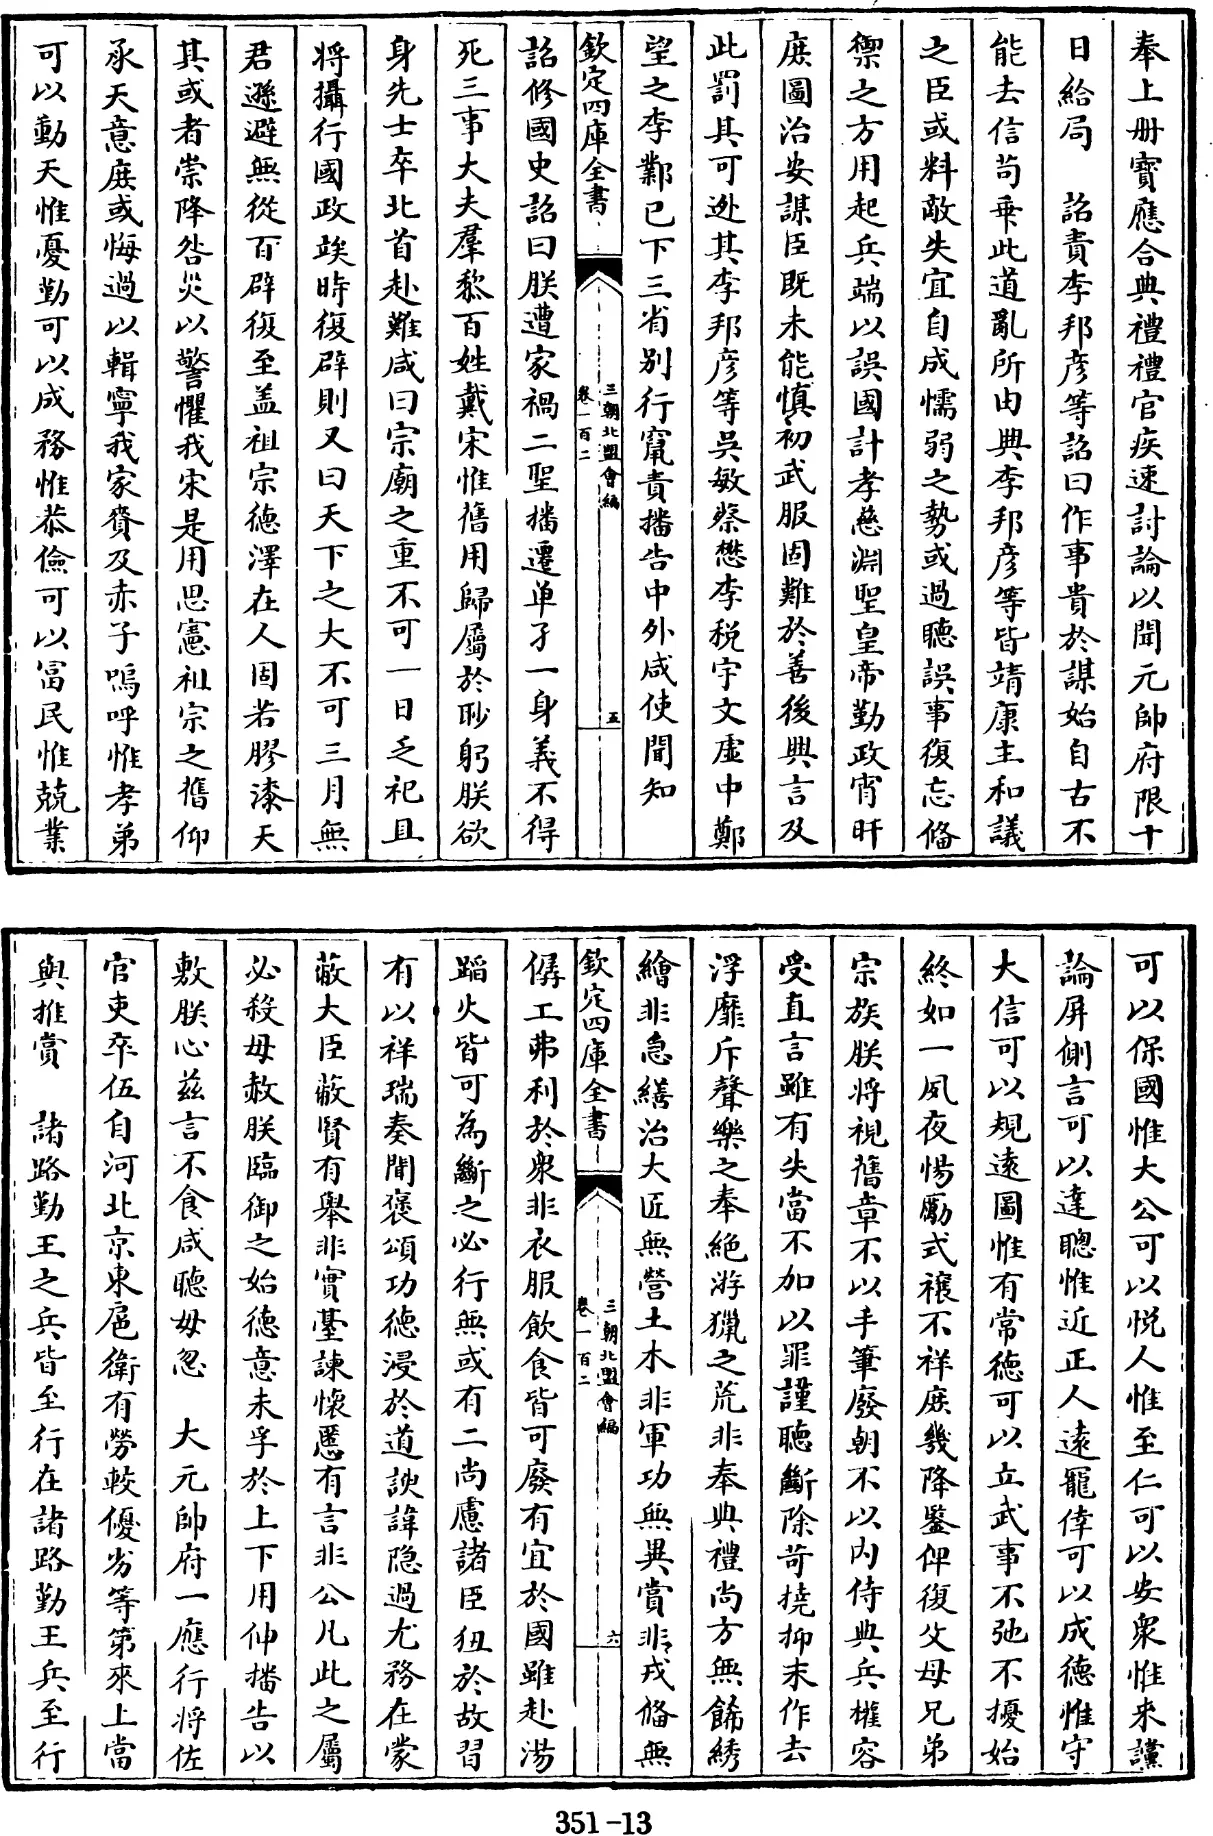 奉上册寳應合典禮禮官疾速討論以聞元帥府限十
日給局　詔責李邦彥等詔曰作事貴於謀始自古不
能去信苟乗此道亂所由興李邦彥等皆靖康主和議
之臣或料敵失宜自成懦弱之勢或過聽誤事復忘備
禦之方用起兵端以誤國計孝慈淵聖皇帝勤政宵旰
庶圖治安謀臣既未能慎初武服固難於善後興言及
此罰其可逃其李邦彥等吳敏蔡懋李梲宇文虛中鄭
望之李鄴已下三省别行竄責播告中外咸使聞知
欽定四庫全書
三朝北盟會編
卷一百二
五
詔修國史詔曰朕遭家禍二聖播遷单孑一身義不得
死三事大夫羣黎百姓戴宋惟舊用歸屬於眇躬朕欲
身先士卒北首赴難咸曰宗廟之重不可一日乏祀且
將攝行國政竢時復辟則又曰天下之大不可三月無
君遜避無從百辟復至盖祖宗德澤在人固若膠漆天
其或者崇降咎災以警懼我宋是用思憲祖宗之舊仰
承天意庶或悔過以輯寧我家賚及赤子嗚呼惟孝弟
可以動天惟憂勤可以成務惟恭儉可以富民惟兢業
可以保國惟大公可以悅人惟至仁可以安衆惟来讜
論屏側言可以達聰惟近正人遠寵倖可以成德惟守
大信可以規遠圖惟有常德可以立武事不弛不擾始
終如一夙夜惕勵式禳不祥庶幾降鑒俾復父母兄弟
宗族朕將視舊章不以手筆廢朝不以内侍典兵權容
受直言雖有失當不加以罪謹聽斷除苛撓抑末作去
浮靡斥聲樂之奉絶游獵之荒非奉典禮尚方無餙綉
繪非急繕治大匠無營土木非軍功無異賞非戎備無
欽定四庫全書
三朝北盟會編
卷一百二
六
僝工弗利於衆非衣服飲食皆可廢有宜於國雖赴湯
蹈火皆可為斷之必行無或有二尚慮諸臣狃於故習
有以祥瑞奏聞褒頌功德浸於道諛諱隐過尤務在蒙
蔽大臣蔽賢有舉非實臺諫懷慝有言非公凡此之屬
必殺毋赦朕臨御之始德意未孚於上下用伸播告以
敷朕心兹言不食咸聴毋忽　大元帥府一應行将佐
官吏卒伍自河北京東扈衛有勞較優劣等第來上當
與推賞　諸路勤王之兵皆至行在諸路勤王兵至行
351-13